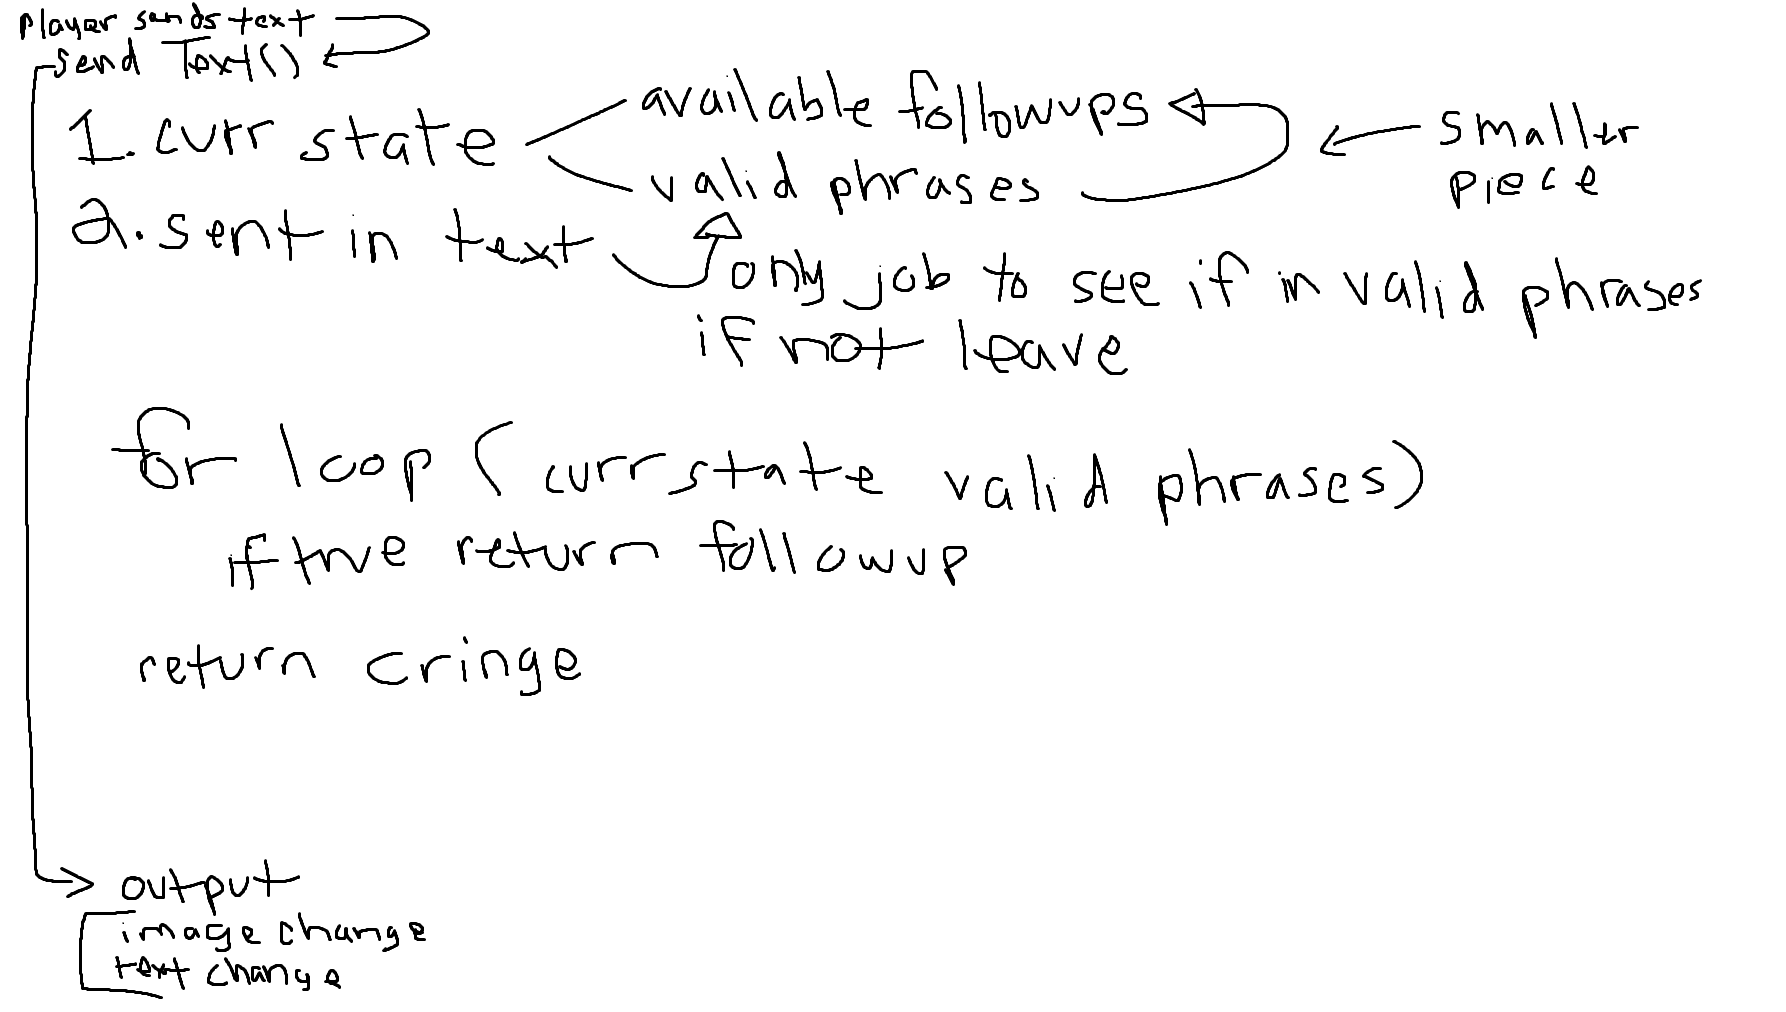 player sends text
send Text()
1. curr state
available followups
valid phrases
smaller
piece
2. sent in text
only job to see if in valid phrases
if not leave
for loop (curr state valid phrases)
if true return followup
return cringe
output
image change
text change